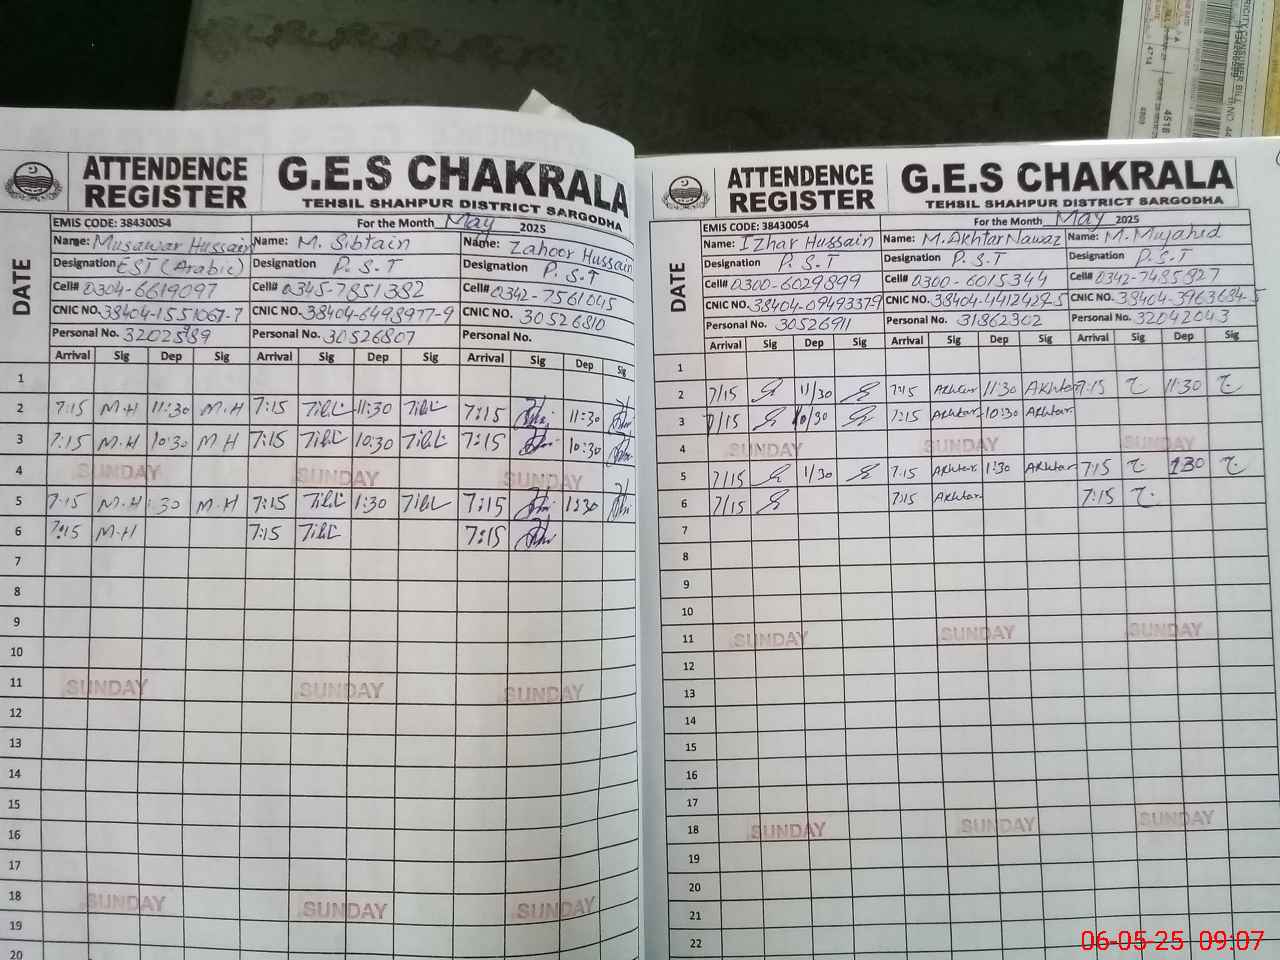 ATTENDENCE REGISTER G.E.S CHAKRALA
TEHSIL SHAHPUR DISTRICT SARGODHA
DATE
EMIS CODE: 38430054 For the Month May 2025
Name: Musawar Hussain Name: M. Sibtain Name: Zahoor Hussain
Designation EST (Arabic) Designation P.S.T Designation P.S.T
Cell# 0304-6619097 Cell# 0345-7851382 Cell# 0342-7561045
CNIC NO. 38404-1551067-7 CNIC NO. 38404-6498977-9 CNIC NO. 30526810
Personal No. Personal No. 30526807 Personal No.
Arrival Sig Dep Sig Arrival Sig Dep Sig Arrival Sig Dep Sig
1
2 7:15 M.H 11:30 M.H 7:15 11:30 7:15 11:30
3 7:15 M.H 10:30 M.H 7:15 10:30 7:15 10:30
4 SUNDAY SUNDAY SUNDAY
5 7:15 M.H :30 M.H 7:15 1:30 7:15 1:30
6 7:15 M.H 7:15 7:15
7
8
9
10
11 SUNDAY SUNDAY SUNDAY
12
13
14
15
16
17
18 SUNDAY SUNDAY SUNDAY
19
20
ATTENDENCE REGISTER G.E.S CHAKRALA
TEHSIL SHAHPUR DISTRICT SARGODHA
DATE
EMIS CODE: 38430054 For the Month May 2025
Name: IZhar Hussain Name: M.Akhtar Nawaz Name: M. Mujahid
Designation P.S.T Designation P.S.T Designation P.S.T
Cell# 0300-6029899 Cell# 0300-6015344 Cell# 0342-7485827
CNIC NO. 38404-0949337-9 CNIC NO. 38404-4412427-5 CNIC NO. 38404-3963684-5
Personal No. 30526911 Personal No. 31862302 Personal No. 32042043
Arrival Sig Dep Sig Arrival Sig Dep Sig Arrival Sig Dep Sig
1
2 7/15 11/30 7:15 Akhtar 11:30 Akhtar 7:15 11:30
3 7/15 10/30 7:15 Akhtar 10:30 Akhtar
4 SUNDAY SUNDAY SUNDAY
5 7/15 1/30 7:15 Akhtar 1:30 Akhtar 7:15 1:30
6 7/15 7:15 Akhtar 7:15
7
8
9
10
11 SUNDAY SUNDAY SUNDAY
12
13
14
15
16
17
18 SUNDAY SUNDAY SUNDAY
19
20
21
22
06-05-25 09:07